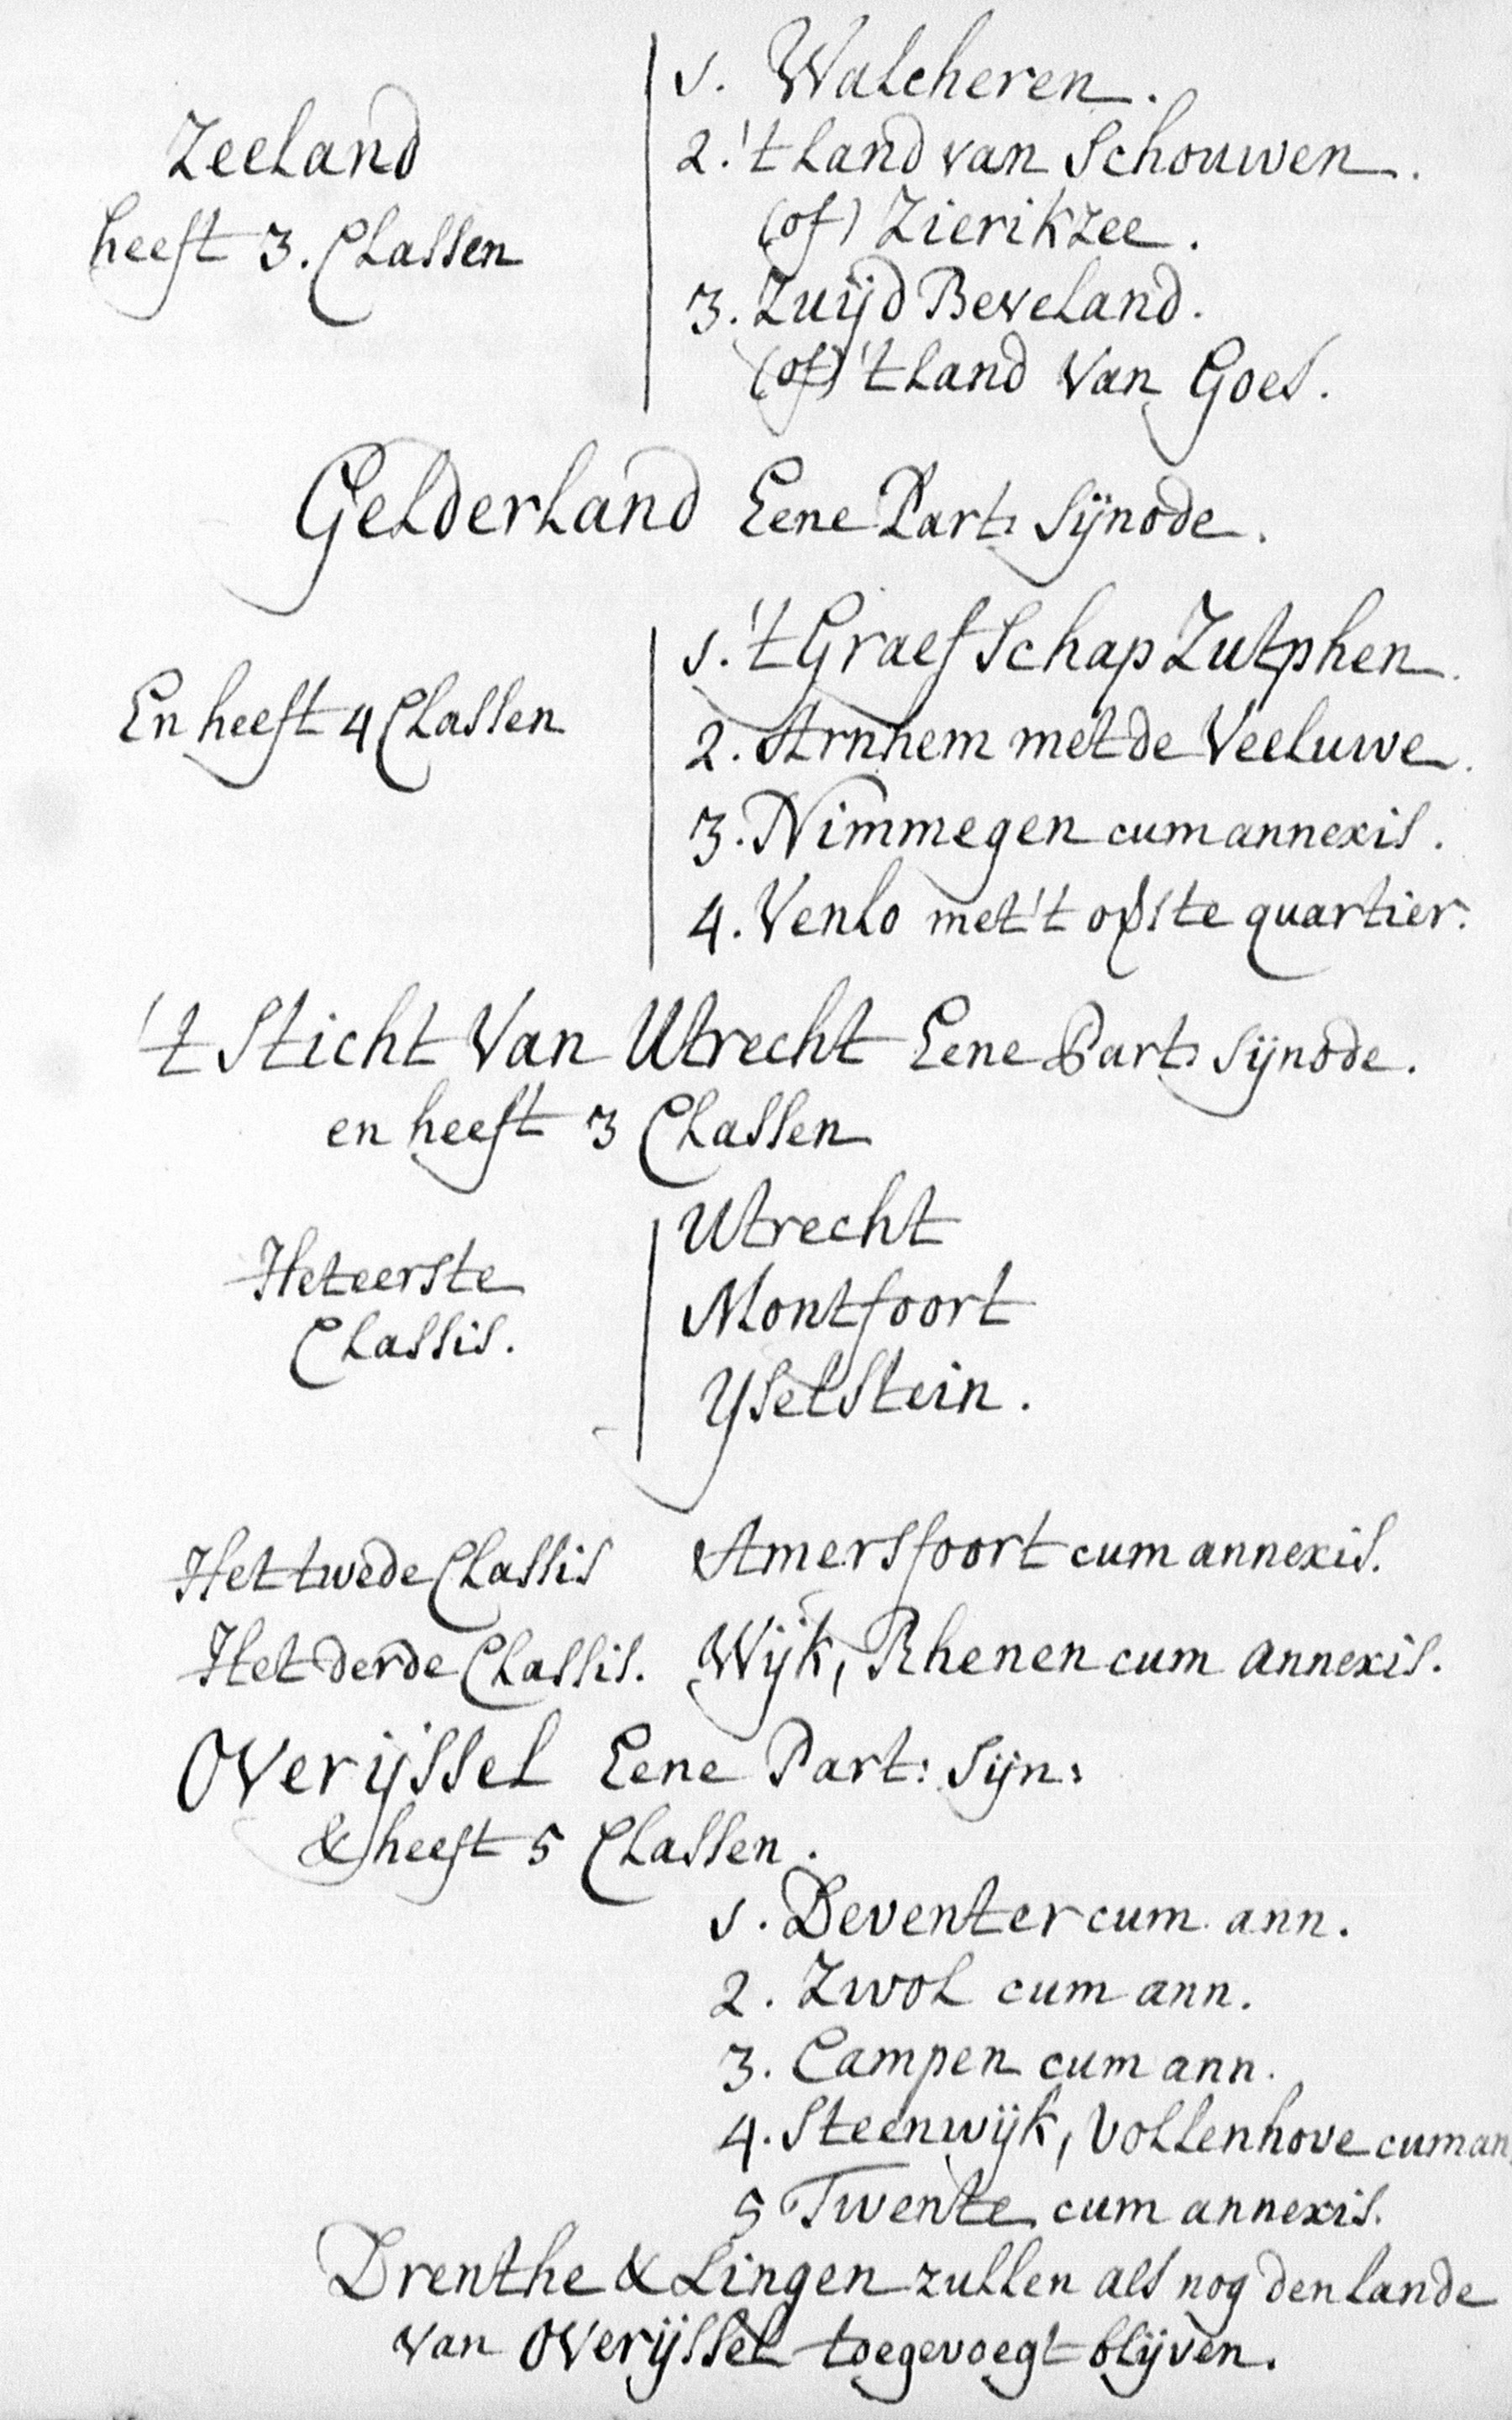 Zeeland
heeft 3. Classen
1. Walcheren.
2. 't Land van Schouwen.
(of) Zierikzee.
3. Zuijd Beveland.
(of) 't Land van Goes.
Gelderland Eene Part: Sijnode.
En heeft 4 Classen
1. 't Graefschap Zutphen.
2. Arnhem met de Veeluwe.
3. Nimmegen cum annexis.
4. Venlo met 't opste quartier.
't Sticht Van Utrecht Eene Part: Sijnode.
en heeft 3 Classen
Het eerste
Classis.
Utrecht
Montfoort
Yselstein.
Het twede Classis Amersfoort cum annexis.
Het derde Classis. Wijk, Rhenen cum annexis.
Overijssel Eene Part: Sijn:
& heeft 5 Classen.
1. Deventer cum ann.
2. Zwol cum ann.
3. Campen cum ann.
4. Steenwijk, Vollenhove cum an
5 Twente cum annexis.
Drenthe & Lingen zullen als nog den lande
van Overijssel toegevoegt blijven.